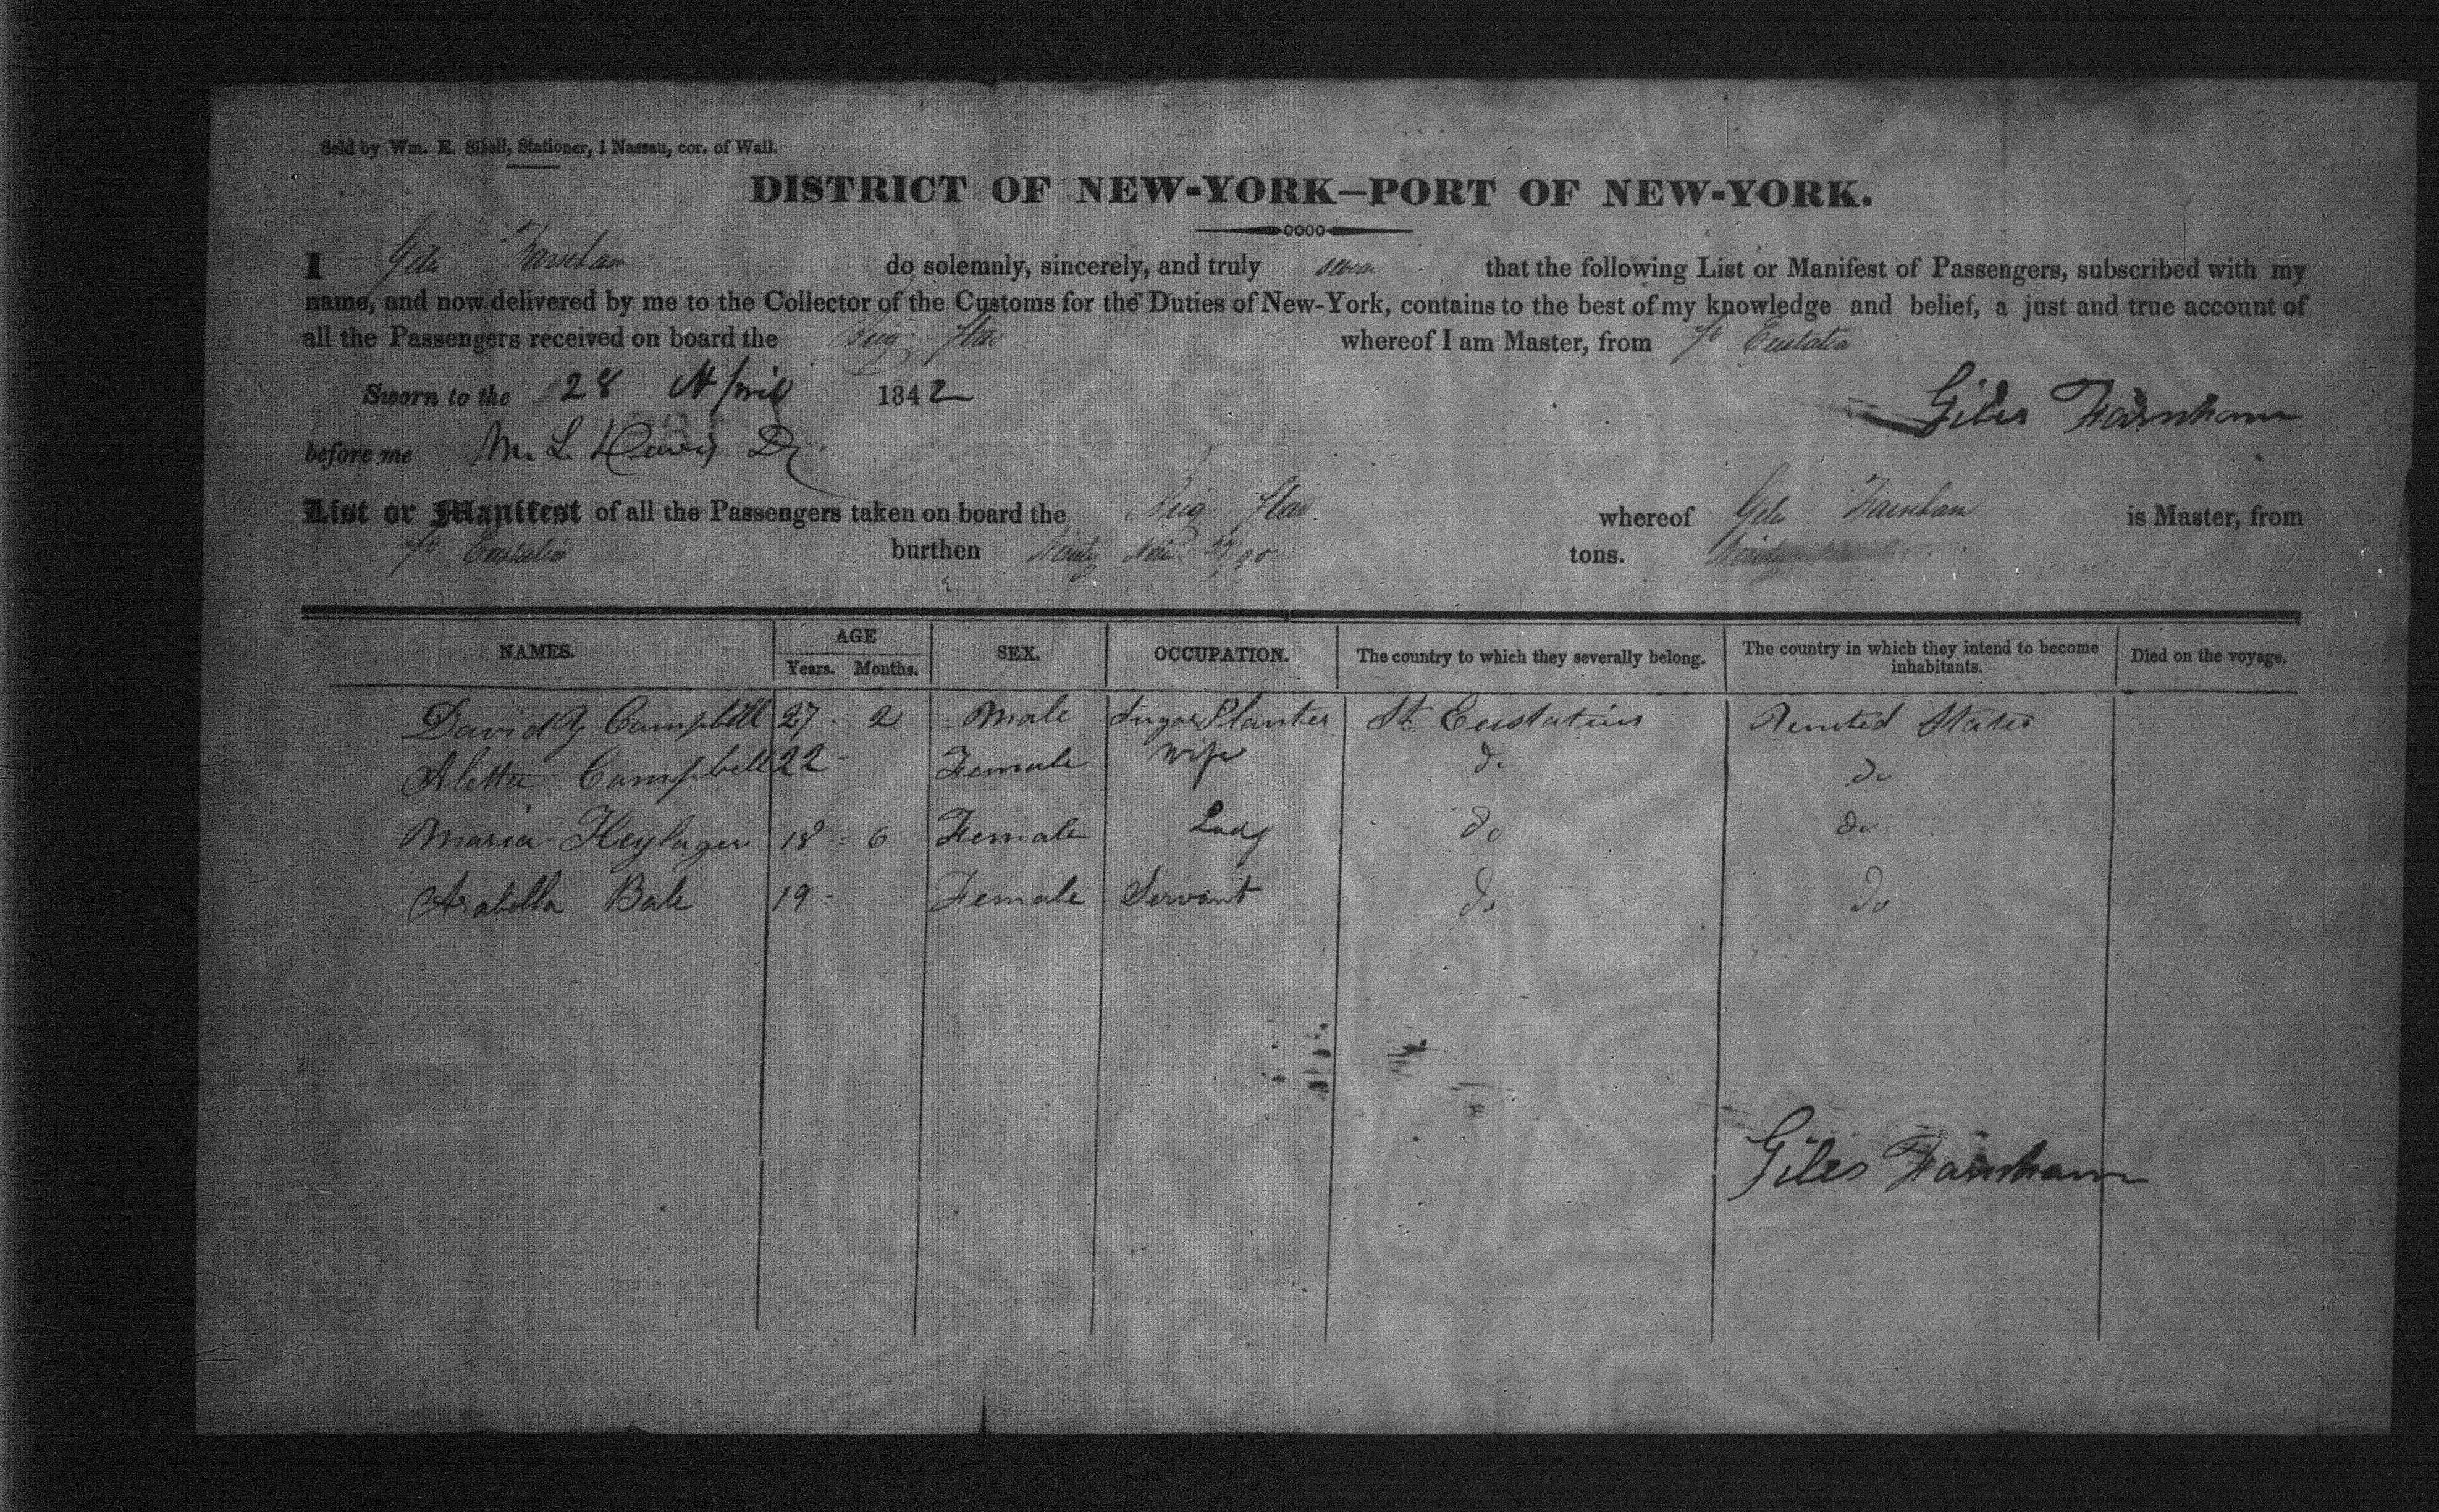 Sold by Wm. E. Sibell, Stationer, 1 Nassau, cor. of Wall.
DISTRICT OF NEW-YORK—PORT OF NEW-YORK.
I Giles Farnham do solemnly, sincerely, and truly swear that the following List or Manifest of Passengers, subscribed with my
name, and now delivered by me to the Collector of the Customs for the Duties of New-York, contains to the best of my knowledge and belief, a just and true account of
all the Passengers received on board the Brig Star whereof I am Master, from St Eustatia
Sworn to the 28 April 1842
Giles Farnham
before me M. L. Davis
List or Manifest of all the Passengers taken on board the Brig Star whereof Giles Farnham is Master, from
St Eustatia burthen Ninety tons.
NAMES. AGE Years. Months. SEX. OCCUPATION. The country to which they severally belong. The country in which they intend to become inhabitants. Died on the voyage.
David Campbell 27 - 2 Male Sugar Planter St. Eustatius United States
Aletta Campbell 22 - Female Wife do do
Maria Heylager 18 - 6 Female Lady do do
Arabella Bale 19 - Female Servant do do
Giles Farnham